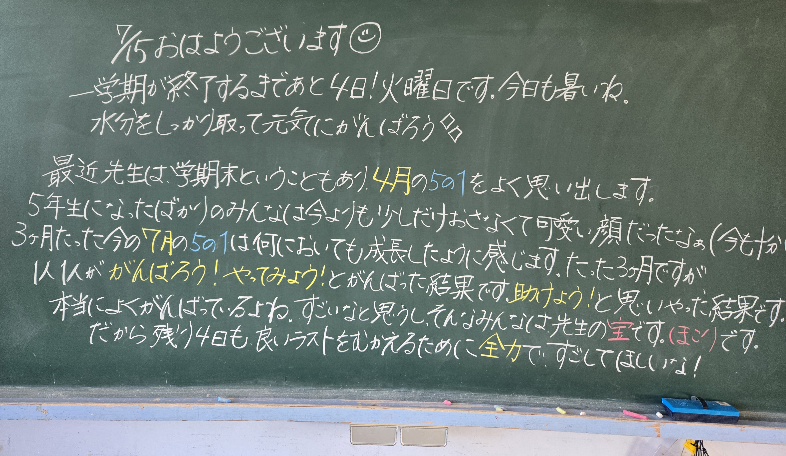 7/15 おはようございます
一学期が終了するまであと4日!火曜日です。今日も暑いね。
水分をしっかり取って元気にがんばろう
最近先生は、学期末ということもあり、4月の5の1をよく思い出します。
5年生になったばかりのみんなは今よりも少しだけおさなくて可愛い顔だったなぁ(今も
3ヶ月たった今の7月の5の1は何においても成長したように感じます。たった3ヶ月ですが
1人1人ががんばろう!やってみよう!とがんばった結果です。助けよう!と思いやった結果です。
本当によくがんばっているよね。すごいなと思うし、そんなみんなは、先生の宝です。(ほこり)です。
だから残り4日も、良いラストをむかえるために全力で、すごしてほしいな!